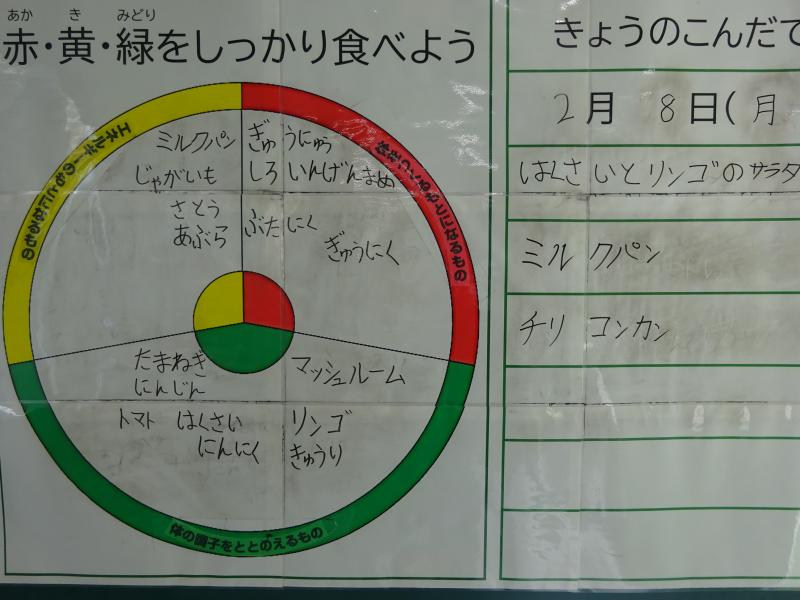 赤・黄・緑をしっかり食べよう
あか き みどり
エネルギーのもとになるもの
ミルクパン
じゃがいも
さとう
あぶら
体をつくるもとになるもの
ぎゅうにゅう
しろいんげんまめ
ぶたにく
ぎゅうにく
たまねぎ
にんじん
トマト はくさい
にんにく
マッシュルーム
リンゴ
きゅうり
体の調子をととのえるもの
きょうのこんだて
2月 8日(月
はくさいとリンゴのサラダ
ミルクパン
チリコンカン